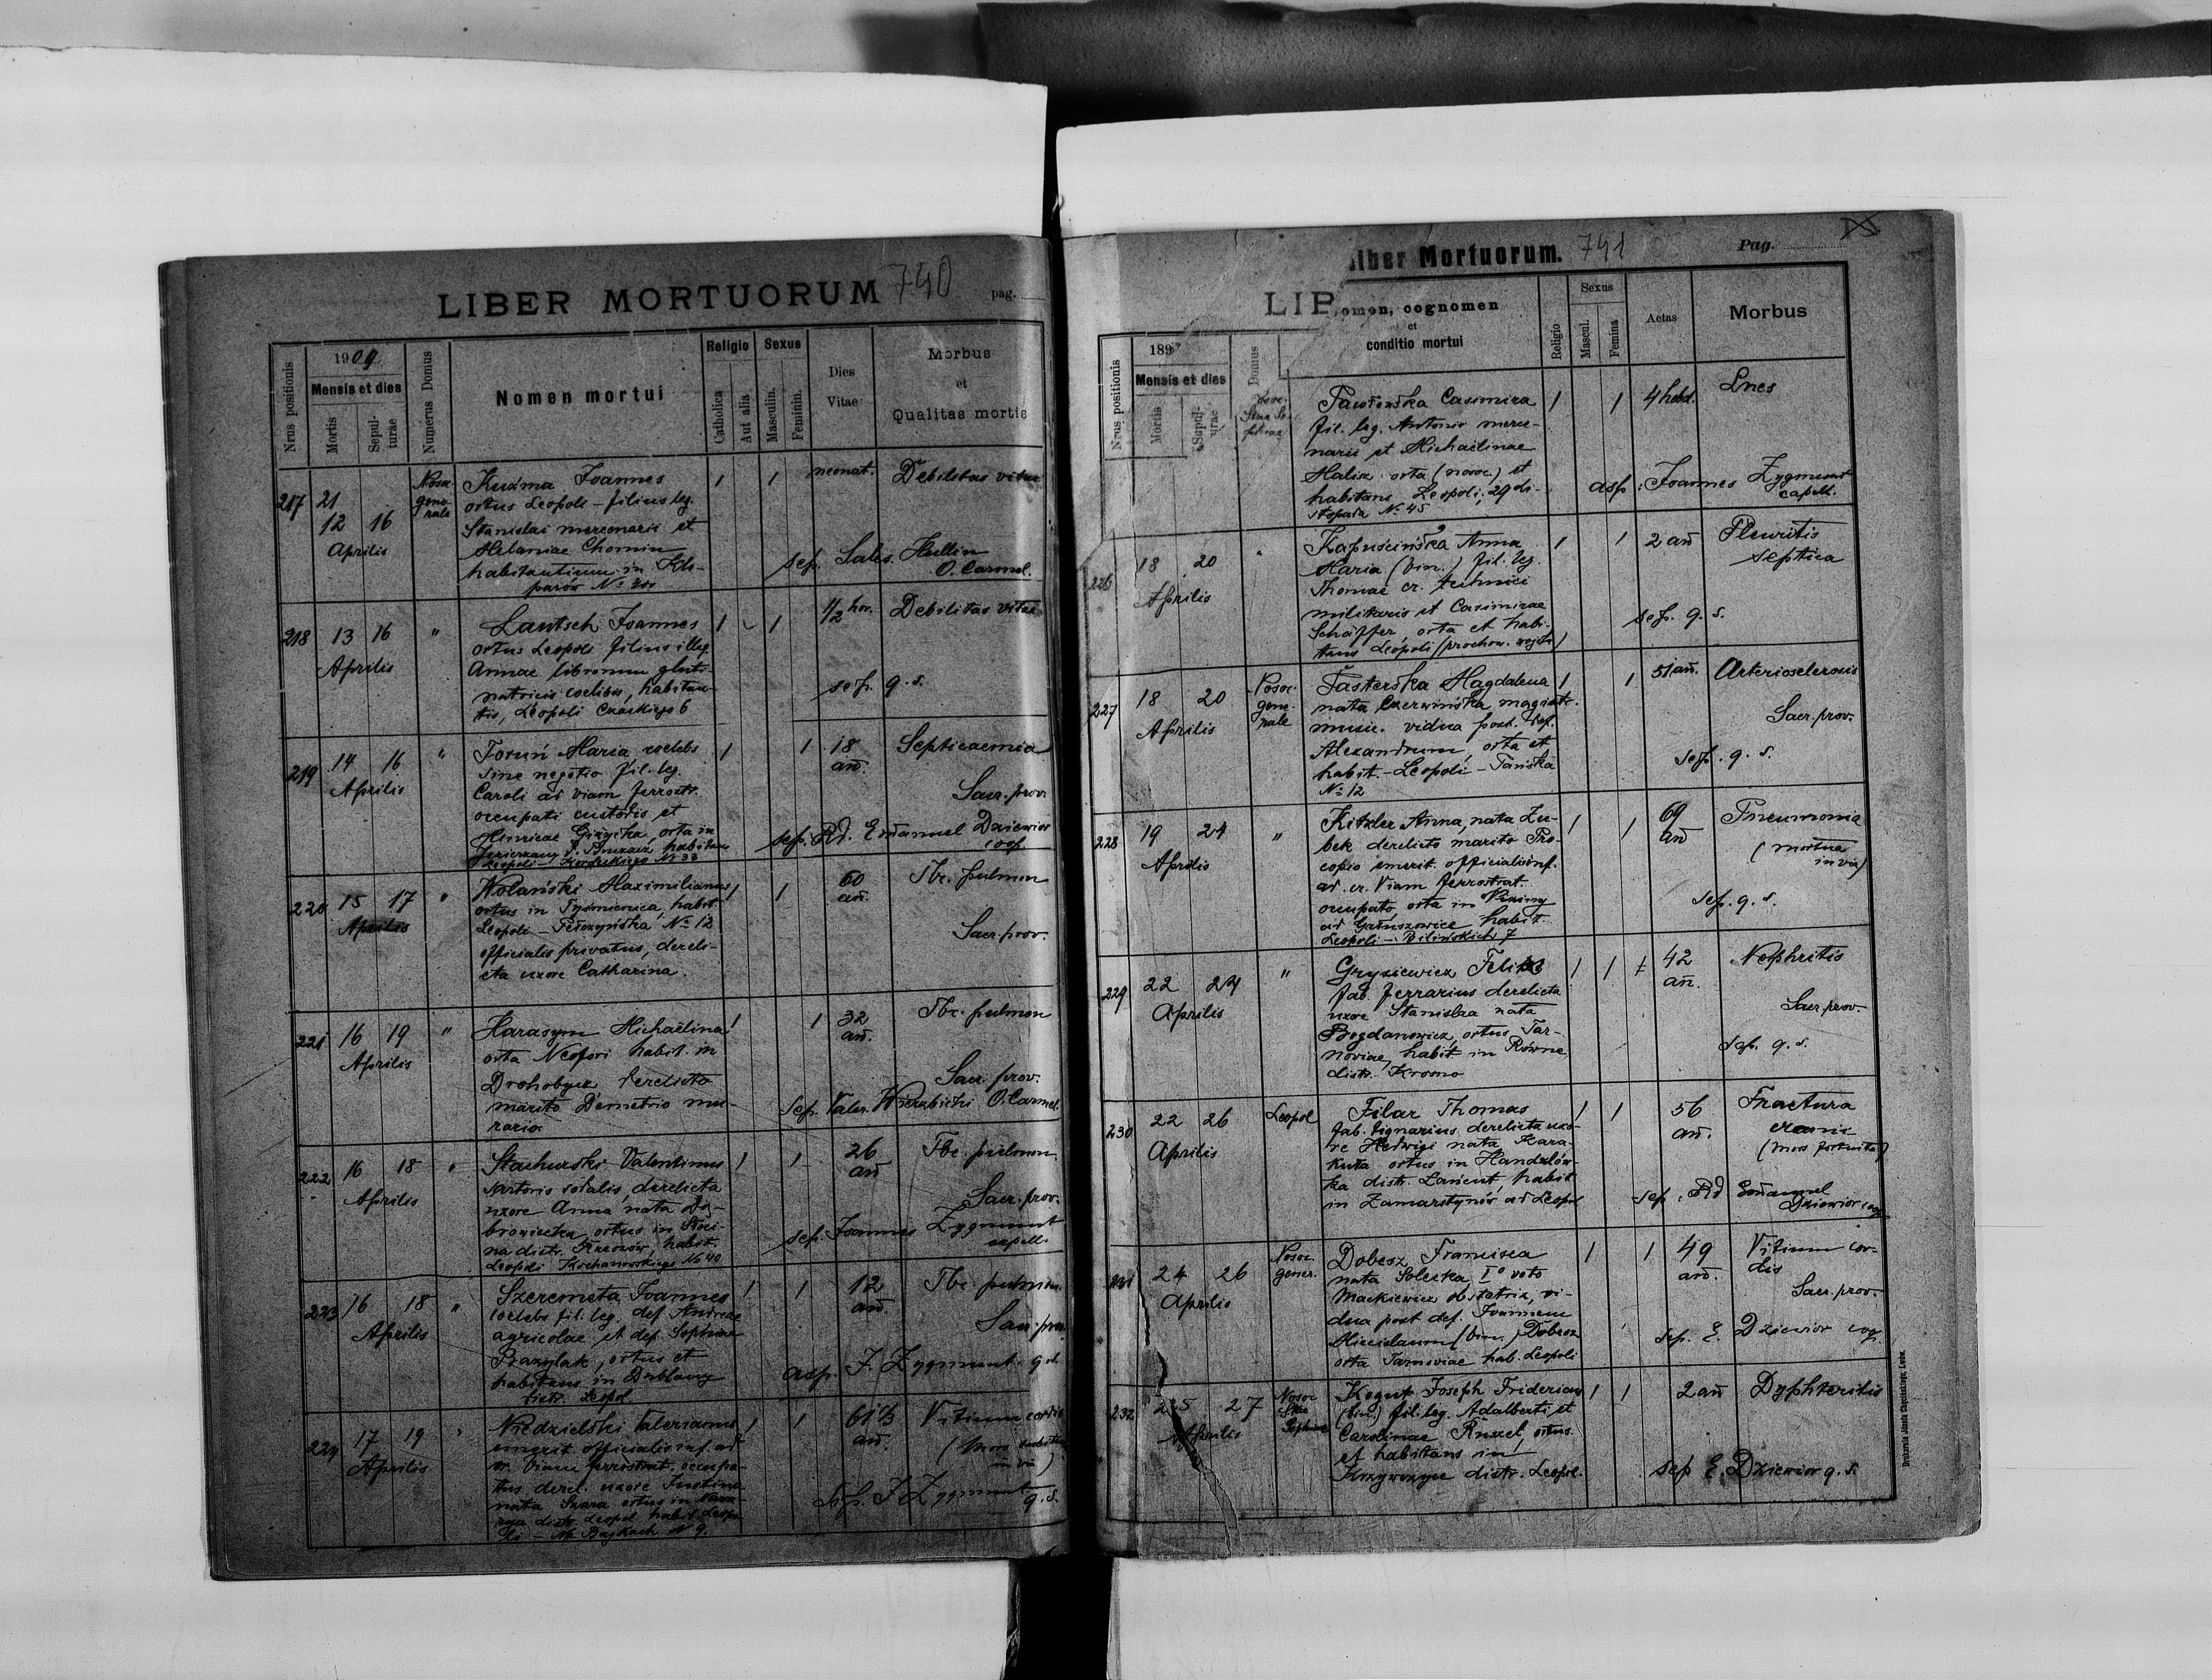 LIBER MORTUORUM 740 pag.
Nrus positionis
1909
Mensis et dies
Mortis
Sepulturae
Numerus Domus
Nomen mortui
Religio
Catholica
Aut alia
Sexus
Masculin.
Feminin.
Dies Vitae
Morbus
et
Qualitas mortis
217 21 12 16 Aprilis
Nosoc. generale
Kuźma Joannes
ortus Leopoli – filius leg.
Stanislai mercenarii et
Melaniae Chomin
habitantium in Kle-
parów
1 1 neonat. Debilitas vitae
sep. Sales. Hullin
O. Carmel.
218 13 16 Aprilis "
Lautsch Joannes
ortus Leopoli filius illeg.
Annae librorum gluti-
natricis coelibis, habitan-
tis, Leopoli Czackiego 6
1 1 1/2 hor. Debilitas vitae
sep. q. s.
219 14 16 Aprilis "
Toruń Maria coelebs
sine negotio fil. leg.
Caroli ad viam ferrostr.
occupati custodis et
Henricae Giżycka, orta in
Jezierzany habitans
Leopoli – Kordeckiego No 33
1 1 18 an. Septicaemia
Sacr. prov.
sep. Rd. Emanuel Dziewior
coop.
220 15 17 Aprilis "
Wolański Maximilianus
ortus in Tyśmienica, habit.
Leopoli – Pełczyńska No 12
officialis privatus, dereli-
cta uxore Catharina.
1 1 60 an. Tbc. pulmon
Sacr. prov.
221 16 19 Aprilis "
Harasym Michaëlina
orta habit. in
Drohobycz derelicto
marito Demetrio mu-
rario.
1 1 32 an. Tbc. pulmon
Sacr. prov.
Sep. Valer. Wierzbicki O. Carmel.
222 16 18 Aprilis "
Stachurski Valentinus
sartoris sodalis, derelicta
uxore Anna nata Dą-
browiecka, ortus in Słoci-
na distr. Rzeszów, habit.
Leopoli Kochanowskiego No 40
1 1 26 an Tbc. pulmon.
Sacr. prov.
sep. Joannes Zygmunt
capell.
223 16 18 Aprilis "
Szeremeta Joannes
coelebs fil. leg. def. Andreae
agricolae et def. Sophiae
Brazylak, ortus et
habitans in Dublany
distr. Leopol
1 1 12 an. Tbc. pulmon.
Sacr. prov.
asp. J. Zygmunt q. s.
224 17 19 Aprilis "
Niedzielski Valerianus
emerit officialis inf. ad
cr. Viam ferrostrat. occupa-
tus derel. uxore Justina
nata Szara ortus in
distr Leopol habit Leopo-
li – Na Bajkach No 9.
1 1 61 1/2 an. Vitium cordis
(Mors subitan.
in via)
Sep. J Zygmunt q. s.
Liber Mortuorum. 741 Pag.
LIB
Nrus positionis
189
Mensis et dies
Mortis
Sepulturae
Domus
Nomen, cognomen
et
conditio mortui
Religio
Sexus
Mascul.
Femina
Aetas
Morbus
Nosoc. Stae Sophiae
Pawłowska Casimira
fil. leg. Antonio merce-
narii et Michaëlinae
Halisz orta (nosoc.) et
habitans Leopoli, 29 Li-
stopada No 45
1 1 4 hebd. Lues
asp: Joannes Zygmunt
capell.
226 18 20 Aprilis "
Kapuścińska Anna
Maria (bin.) fil. leg.
Thomae cr. technici
militaris et Casimirae
Schäffer, orta et habi-
tans Leopoli (prochow. wojsk.)
1 1 2 an Pleuritis
septica
sep. q. s.
227 18 20 Aprilis
Nosoc. generale
Tasterska Magdalena
nata Czerwińska magistr.
music. vidua post. def.
Alexandrum, orta et
habit. – Leopoli – Tańska
No 12
1 1 51 an. Arteriosclerosis
Sacr. prov.
sep. q. s.
228 19 24 Aprilis "
Kitzler Anna, nata Zu-
bek derelicto marito Pro-
copio emerit. officialis inf.
ad. cr. Viam ferrostrat.
occupato, orta in
ad Gałuszowice habit.
Leopoli – Bilińskich 7
1 1 69 an Pneumonia
(mortua
in via)
sep. q. s.
229 22 24 Aprilis "
Grysiewicz Felix
fab. ferrarius derelicta
uxore Stanislaa nata
Bogdanowicz, ortus Tar-
noviae, habit in Równe
distr. Krosno
1 1 42 an. Nephritis
Sacr. prov.
sep. q. s.
230 22 26 Aprilis
Leopol
Filar Thomas
fab. lignarius derelicta uxo-
re Hedwigi nata Kara-
kuła ortus in Handzlów-
ka distr. Łańcut, habit
in Zamarstynów ad Leopol
1 1 56 an. Fractura
cranii
(mors fortuita)
sep. Rd Emanuel
Dziewior coop
231 24 26 Aprilis
Nosoc. gener.
Dobesz Francisca
nata Solecka I° voto
Mackiewicz obstetrix, vi-
dua post def. Joannem
Miecislaum (bin.) Dobesz
orta Tarnoviae hab. Leopoli
1 1 49 an. Vitium cor-
dis
Sacr. prov.
sep. E. Dziewior coop.
232 25 27 Aprilis
Nosoc Stae Sophiae
Kogut Joseph Fridericus
(bin.) fil. leg. Adalberti et
Carolinae Ruzzel, ortus
et habitans in
Krzywczyce distr. Leopol.
1 1 2 an Dyphteritis
sep E. Dziewior q. s.
Drukarnia Józefa Chęcińskiego, Lwów.